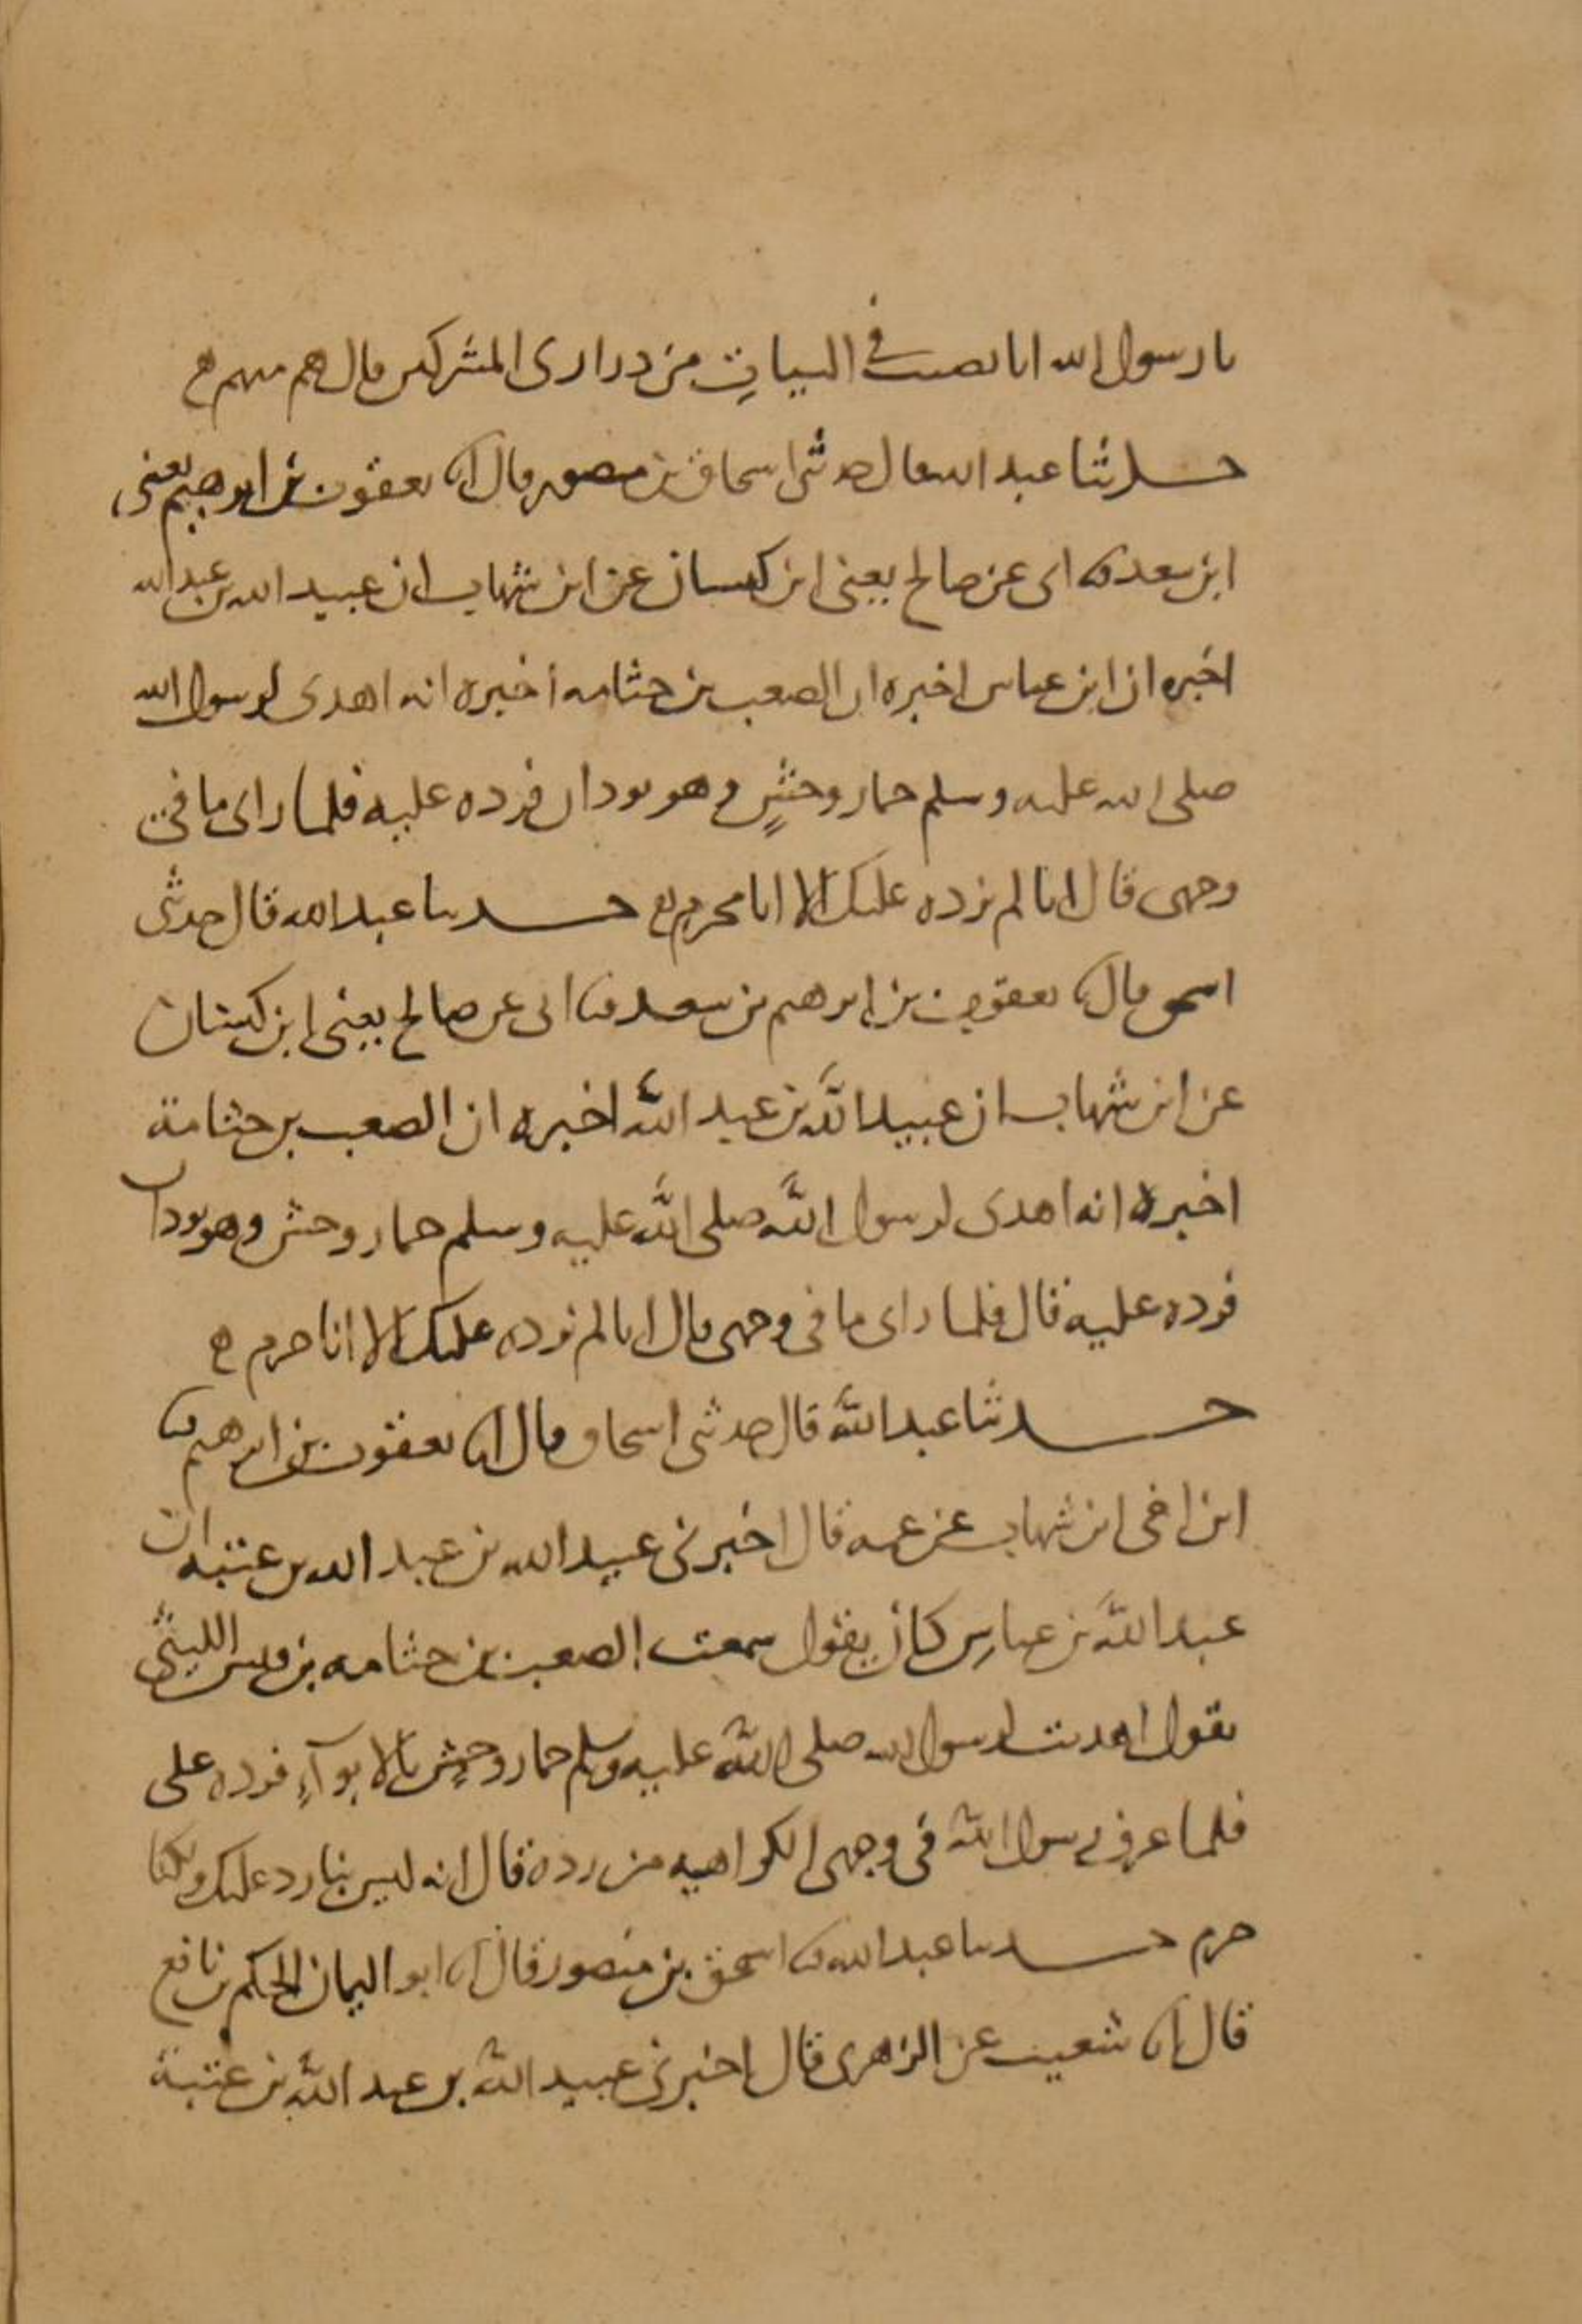 يا رسول الله انا نصيب في البيات من ذراري المشركين قال هم منهم
حدثنا عبد الله قال حدثني اسحاق بن منصور قال انا يعقوب بن ابرهيم يعني
ابن سعد نا ابي عن صالح يعني ابن كيسان عن ابن شهاب ان عبيد الله بن عبد الله
اخبره ان ابن عباس اخبره ان الصعب بن جثامه أخبره انه اهدى لرسول الله
صلى الله عليه وسلم حمار وحشٍ وهو بودان فرده عليه فلما راى ما في
وجهي قال انا لم نرده عليك الا انا محرم حدثنا عبد الله قال حدثني
اسحق قال انا يعقوب بن ابرهيم بن سعد نا ابي عن صالح يعني ابن كيسان
عن ابن شهاب ان عبيد الله بن عبد الله اخبره ان الصعب بن جثامة
اخبره انه اهدى لرسول الله صلى الله عليه وسلم حمار وحش وهو بودان
فرده عليه قال فلما راى ما في وجهي قال انا لم نرده عليك الا انا حرم
حدثنا عبد الله قال حدثني اسحاق قال انا يعقوب بن ابرهيم نا
ابن اخي ابن شهاب عن عمه قال اخبرني عبيد الله بن عبد الله بن عتبه ان
عبد الله بن عباسٍ كان يقول سمعت الصعب بن جثامه بن قيس الليثي
يقول اهديت لرسول الله صلى الله عليه وسلم حمار وحشٍ بالابوآءِ فرده علي
فلما عرف رسول الله في وجهي الكراهيه من رده قال انه ليس بنا رد عليك ولكنا
حرم حدثنا عبد الله نا اسحق بن منصور قال انا ابو اليمان الحكم بن نافع
قال انا شعيب عن الزهري قال اخبرني عبيد الله بن عبد الله بن عتبة